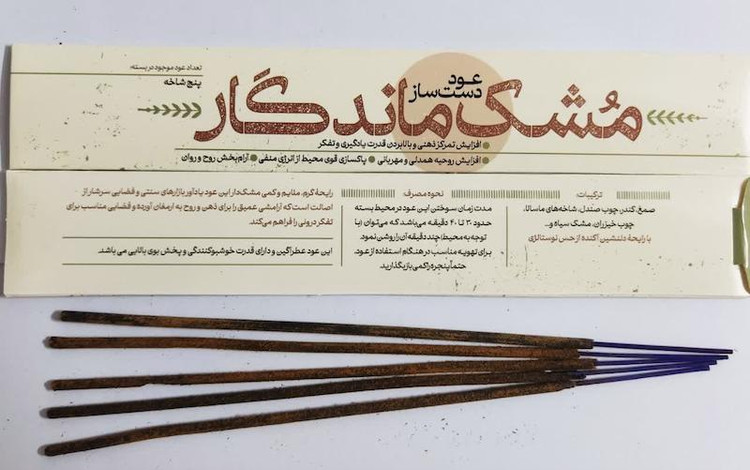 تعداد عود موجود در بسته:
پنج شاخه
عود
دست‌ساز
مُشک ماندگار
افزایش تمرکز ذهنی و بالا بردن قدرت یادگیری و تفکر
افزایش روحیه همدلی و مهربانی ● پاکسازی قوی محیط از انرژی منفی ● آرام‌بخش روح و روان
ترکیبات
صمغ، کندر، چوب صندل، شاخه‌های ماسالا،
چوب خیزران، مشک سیاه و...
با رایحهٔ دلنشین آکنده از حس نوستالژی
نحوه مصرف
مدت زمان سوختن این عود در محیط بسته
حدود ۳۰ تا ۴۰ دقیقه می‌باشد که می‌توان (با
توجه به محیط) چند دقیقه آن را روشن نمود.
برای تهویه مناسب در هنگام استفاده از عود،
حتماً پنجره را کمی باز بگذارید.
رایحهٔ گرم، ملایم و کمی مشک‌دار این عود یادآور بازارهای سنتی و فضایی سرشار از
اصالت است که آرامشی عمیق را برای ذهن و روح به ارمغان آورده و فضایی مناسب برای
تفکر درونی را فراهم می‌کند.
این عود عطرآگین و دارای قدرت خوشبوکنندگی و پخش بوی بالایی می باشد.